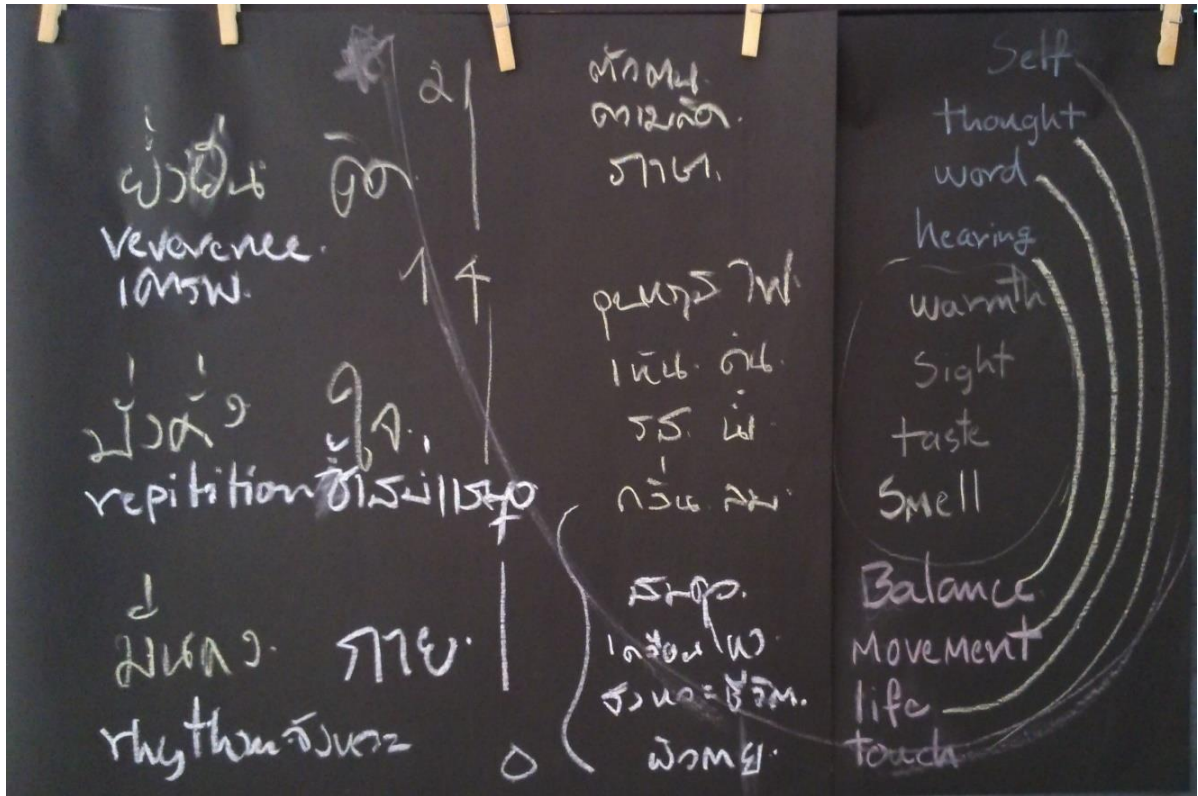 21
ยั่งยืน จิต
reverence.
เคารพ.
14
มั่ง ใจ.
repitition ซ้ำสม่ำเสมอ
7
มั่นคง. กาย.
rhythm จังหวะ
0
ตัวตน.
ความคิด.
ภาษา.
อุณหภูมิ ไฟ.
เห็น. ดิน.
รส. น้ำ
กลิ่น. ลม.
สมดุล.
เคลื่อนไหว
จังหวะชีวิต.
ผิวกาย.
Self
thought
word
hearing
warmth
Sight
taste
Smell
Balance
MOVEMENT
life
touch